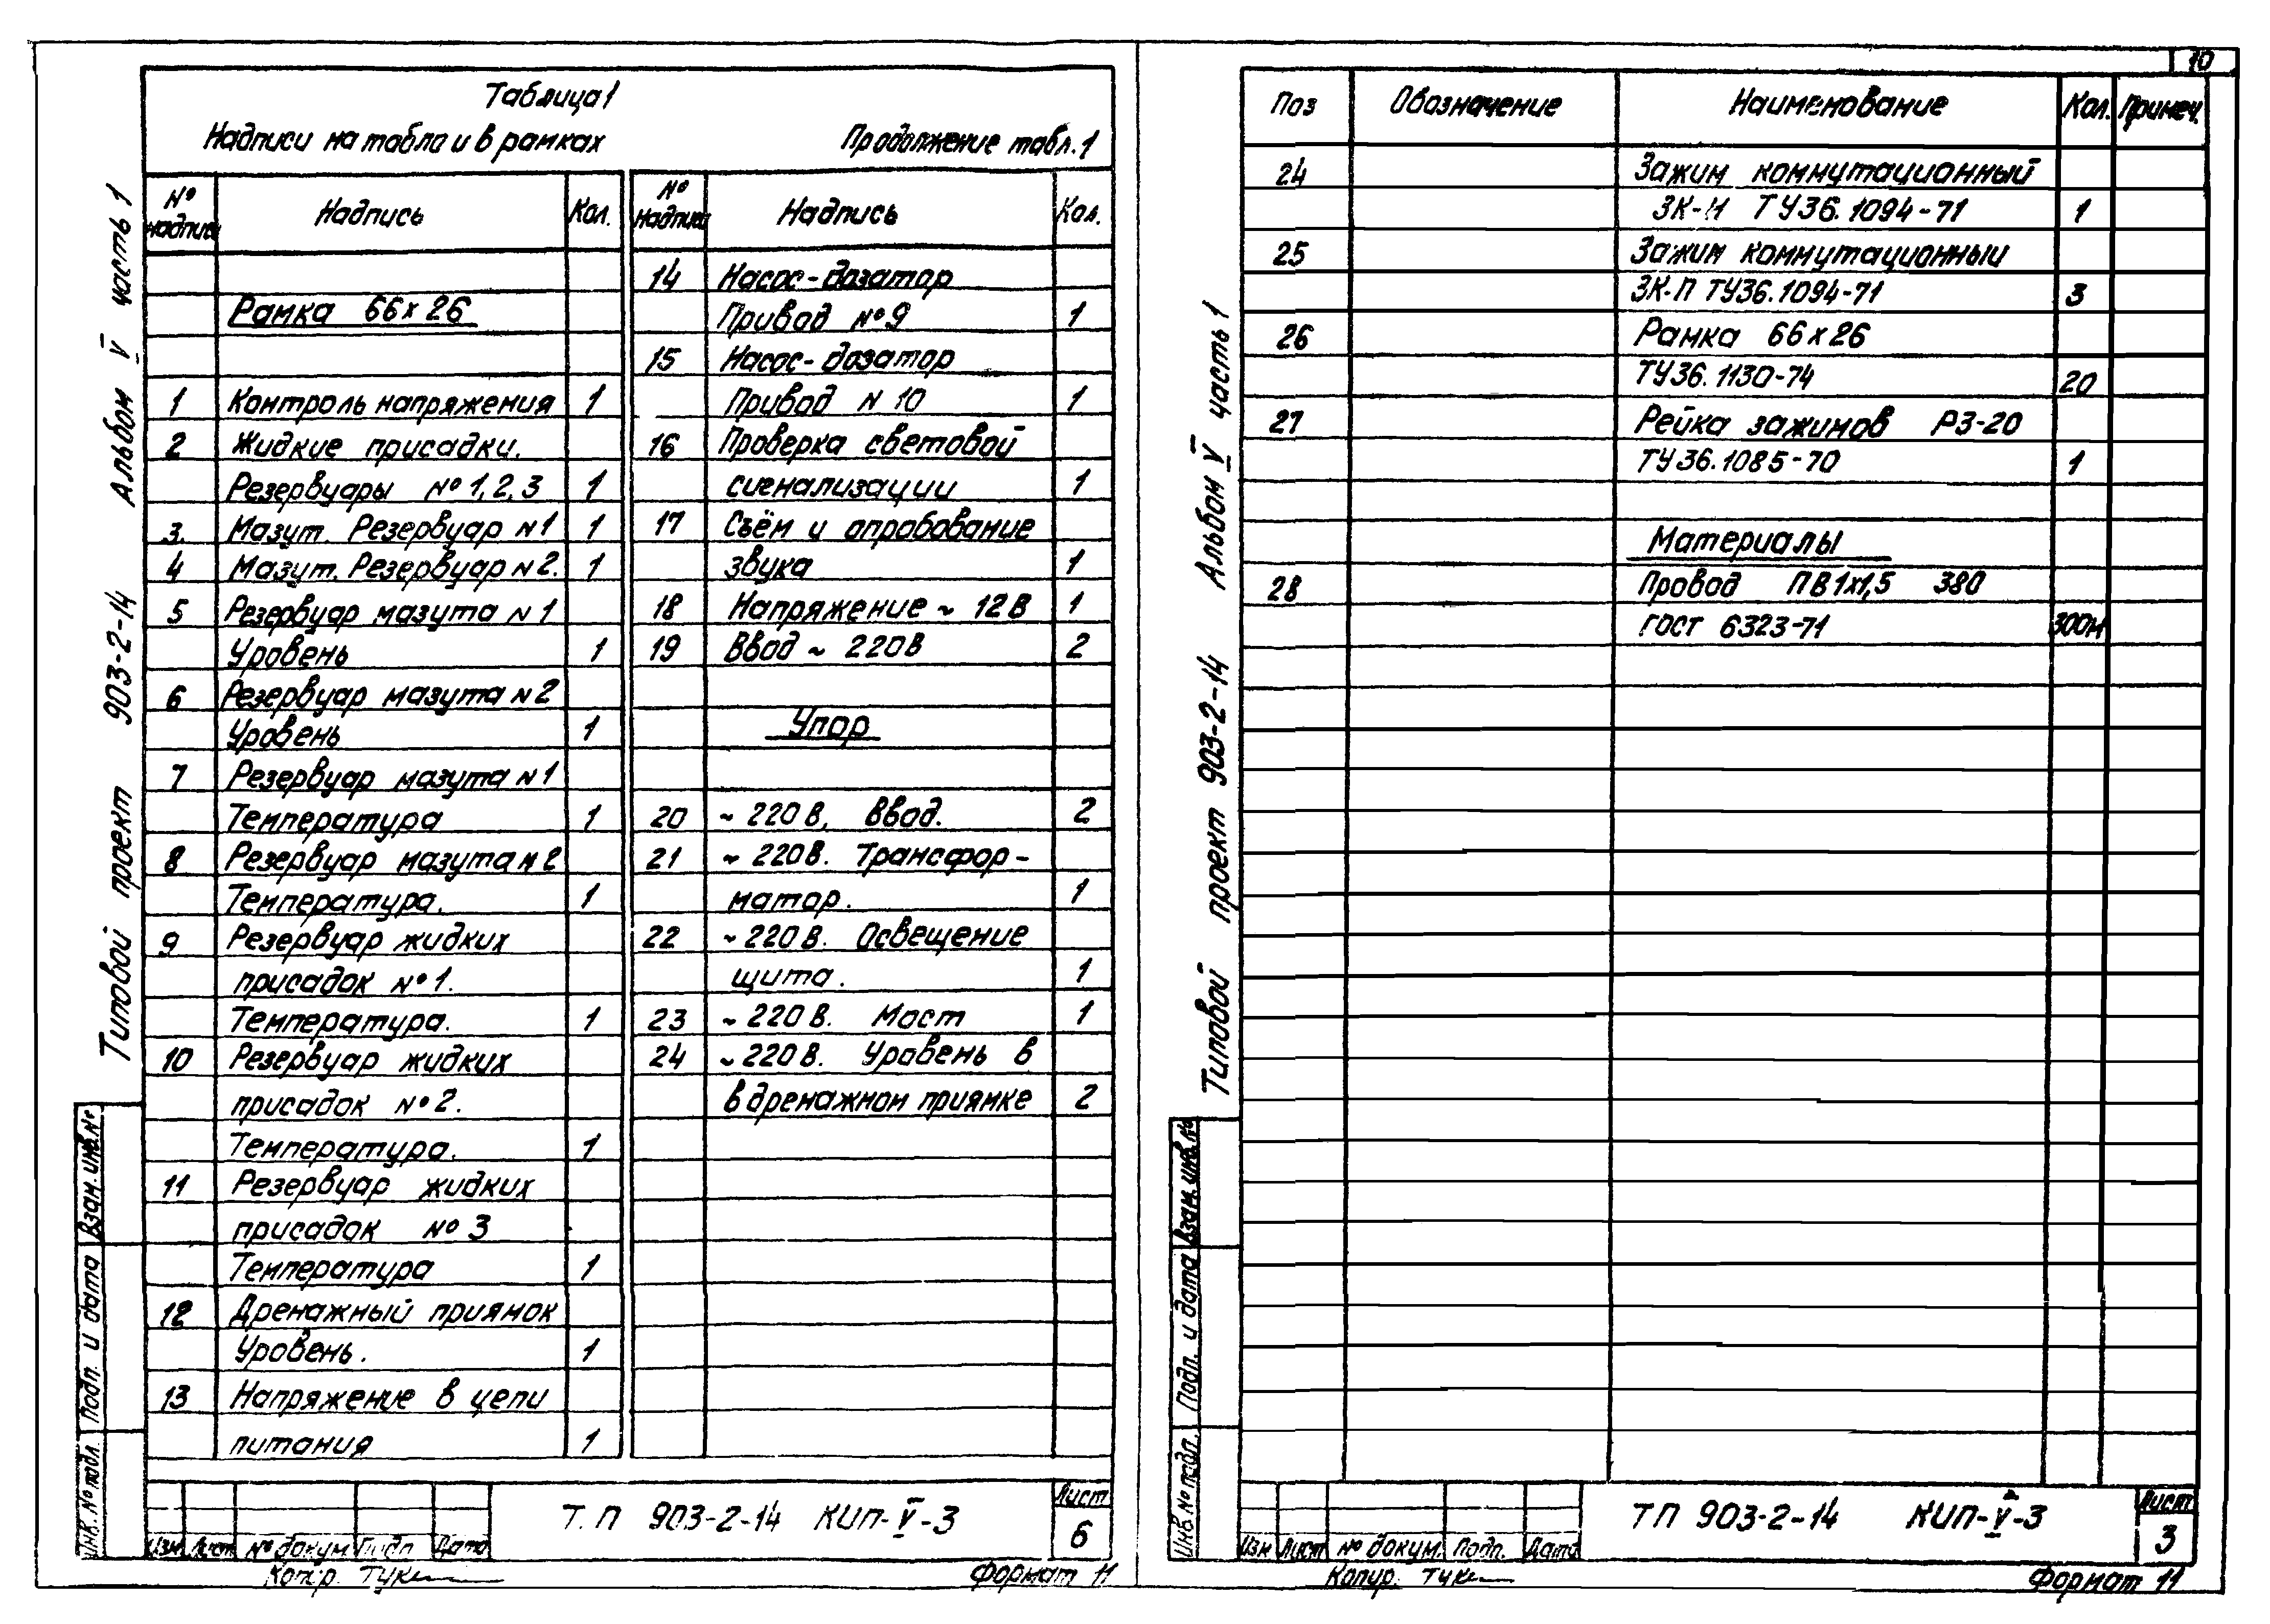 10
Таблица 1
Надписи на табло и в рамках
Продолжение табл. 1
№ надписи Надпись Кол.
Рамка 66х26
1 Контроль напряжения 1
2 Жидкие присадки.
Резервуары №1,2,3 1
3. Мазут. Резервуар №1 1
4 Мазут. Резервуар №2. 1
5 Резервуар мазута №1
Уровень 1
6 Резервуар мазута №2
Уровень 1
7 Резервуар мазута №1
Температура 1
8 Резервуар мазута №2
Температура. 1
9 Резервуар жидких
присадок №1.
Температура. 1
10 Резервуар жидких
присадок №2.
Температура. 1
11 Резервуар жидких
присадок №3
Температура 1
12 Дренажный приямок
Уровень. 1
13 Напряжение в цепи
питания 1
№ надписи Надпись Кол.
14 Насос-дозатор
Привод №9 1
15 Насос-дозатор
Привод N 10 1
16 Проверка световой
сигнализации 1
17 Съём и опробование
звука 1
18 Напряжение ~ 12В 1
19 Ввод ~ 220В 2
Упор
20 ~ 220В, Ввод. 2
21 ~ 220В. Трансфор-
матор. 1
22 ~ 220В. Освещение
щита. 1
23 ~ 220В. Мост 1
24 ~ 220В. Уровень в
в дренажном приямке 2
Типовой проект 903-2-14 Альбом V часть 1
Взам. инв. №
Подп. и дата
Инв. № подл.
Изм Лист № докум. Подп. Дата
Т.П 903-2-14 КИП-V-3
Лист
6
Копир. Тук
Формат 11
Поз Обозначение Наименование Кол. Примеч.
24 Зажим коммутационный
ЗК-Н ТУ36.1094-71 1
25 Зажим коммутационный
ЗК-П ТУ36.1094-71 3
26 Рамка 66х26
ТУ36.1130-74 20
27 Рейка зажимов РЗ-20
ТУ36.1085-70 1
Материалы
28 Провод ПВ1х1,5 380
ГОСТ 6323-71 300м
Типовой проект 903-2-14 Альбом V часть 1
Взам. инв. №
Подп. и дата
Инв. № подл.
Изм Лист № докум. Подп. Дата
ТП 903-2-14 КИП-V-3
Лист
3
Копир. Тук
Формат 11